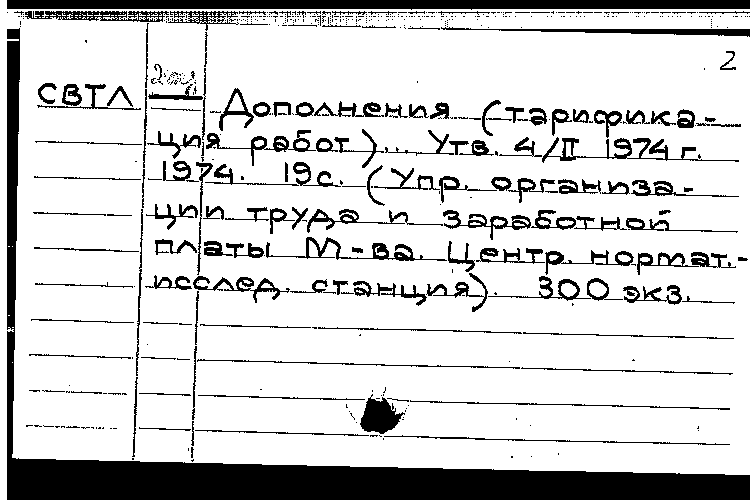 2
СВТЛ
Дополнения (тарифика-
ция работ)... Утв. 4/II 1974 г.
1974. 19с. (Упр. организа-
ции труда и заработной
платы М-ва. Центр. нормат.-
исслед. станция). 300 экз.